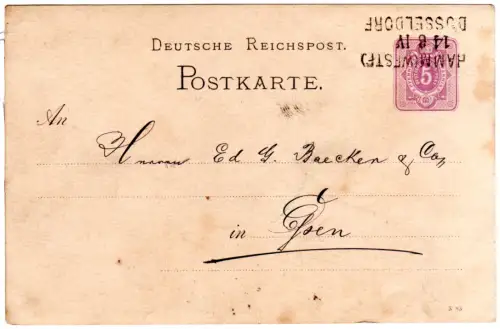 DÜSSELDORF
14 8 IV
HAMM(WESTF)
DEUTSCHE REICHSPOST.
POSTKARTE.
5
An
Herren Ed. G. Baecker & Co,
in Essen